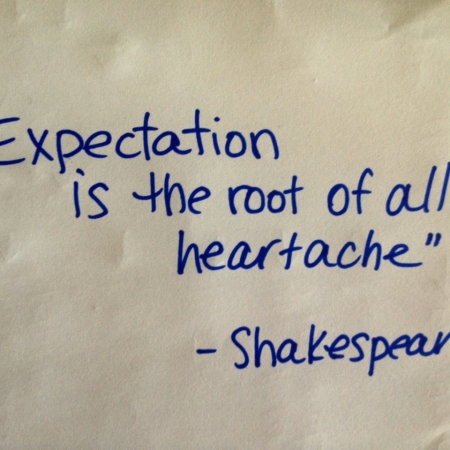 Expectation
is the root of all
heartache"
- Shakespear